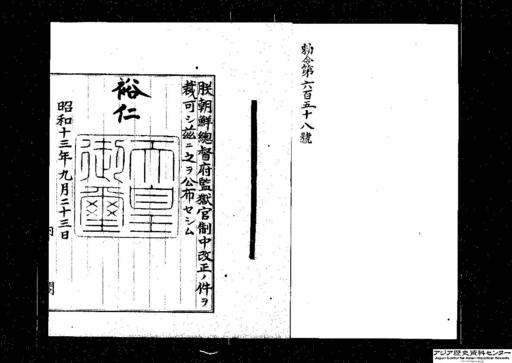 勅令第六百五十八號
朕朝鮮總督府監獄官制中改正ノ件ヲ
裁可シ茲ニ之ヲ公布セシム
裕仁
天皇
御璽
昭和十三年九月二十三日
内閣
アジア歴史資料センター
Japan Center for Asian Historical Records